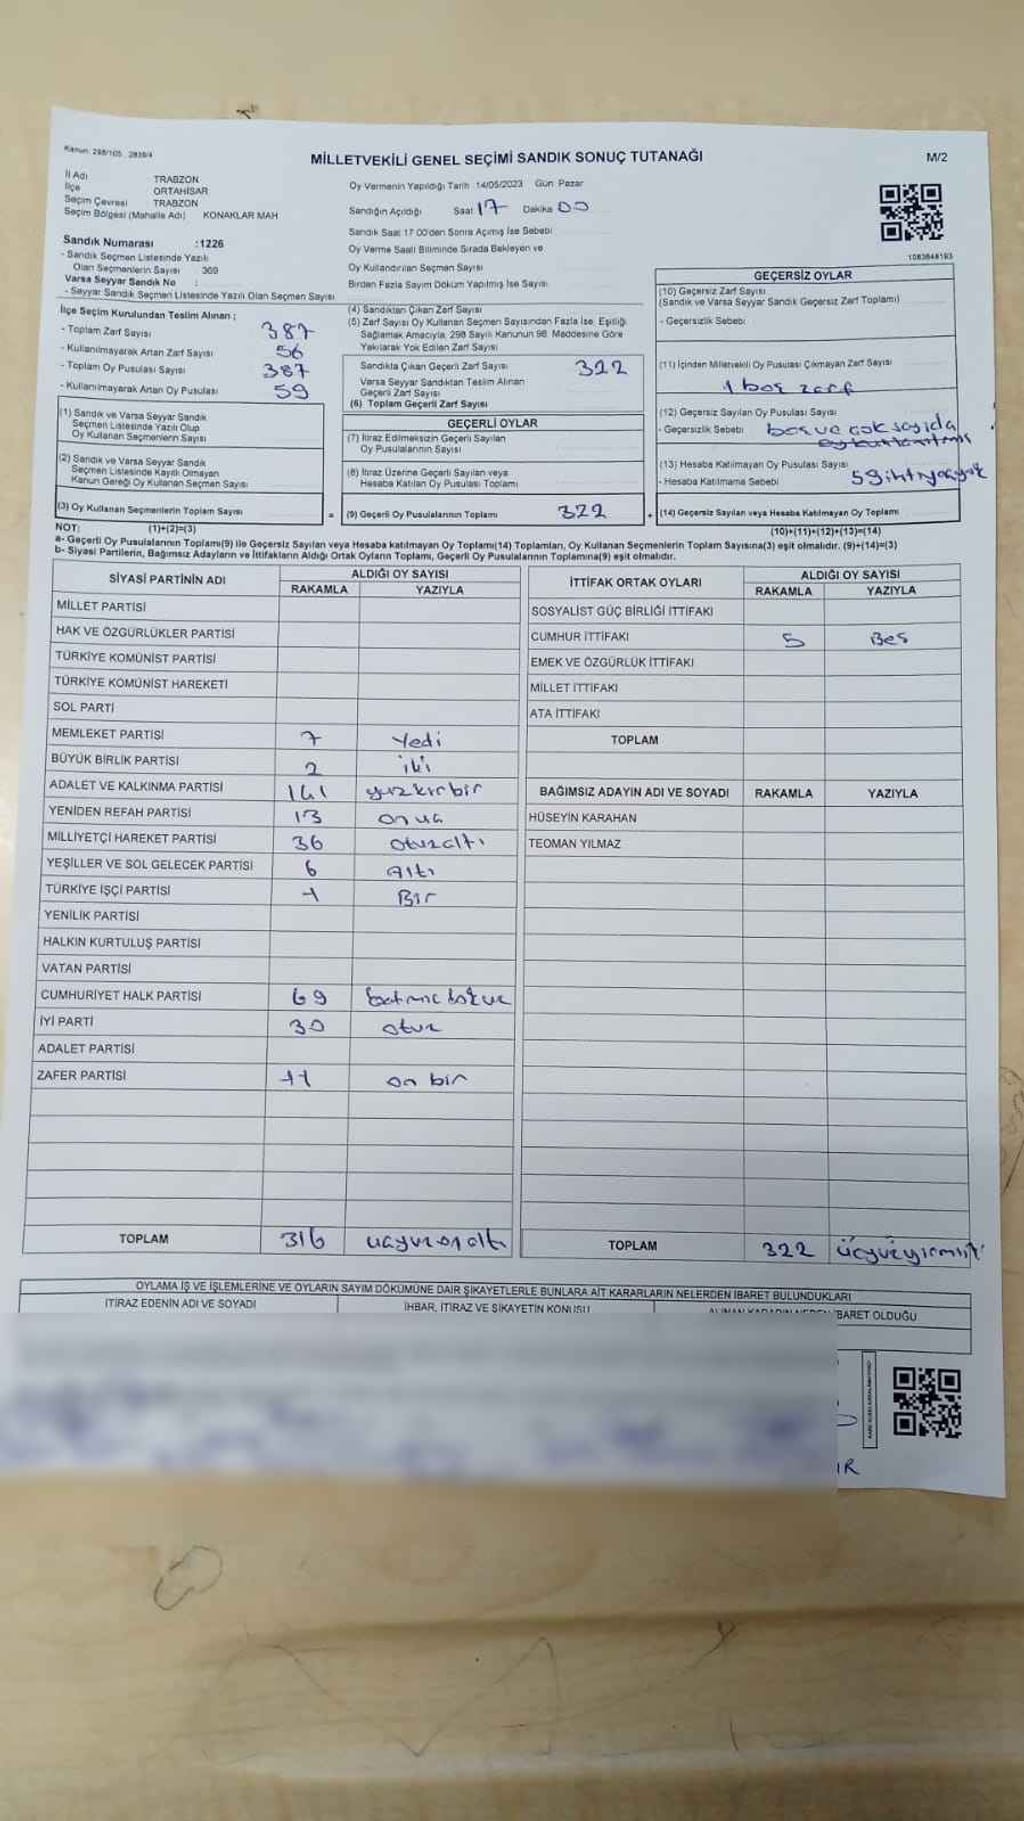 Kanun: 298/105, 2839/4
MİLLETVEKİLİ GENEL SEÇİMİ SANDIK SONUÇ TUTANAĞI
M/2
İl Adı TRABZON
İlçe ORTAHİSAR
Seçim Çevresi TRABZON
Seçim Bölgesi (Mahalle Adı) KONAKLAR MAH
Oy Vermenin Yapıldığı Tarih 14/05/2023 Gün Pazar
Sandığın Açıldığı Saat 17 Dakika 00
Sandık Saat 17:00'den Sonra Açımış İse Sebebi
Oy Verme Saati Bitiminde Sırada Bekleyen ve
Oy Kullandırılan Seçmen Sayısı
Birden Fazla Sayım Döküm Yapılmış İse Sayısı
1083648193
Sandık Numarası :1226
- Sandık Seçmen Listesinde Yazılı
Olan Seçmenlerin Sayısı 369
Varsa Seyyar Sandık No :
- Seyyar Sandık Seçmen Listesinde Yazılı Olan Seçmen Sayısı
İlçe Seçim Kurulundan Teslim Alınan ;
- Toplam Zarf Sayısı 387
- Kullanılmayarak Artan Zarf Sayısı 56
- Toplam Oy Pusulası Sayısı 387
- Kullanılmayarak Artan Oy Pusulası 59
(1) Sandık ve Varsa Seyyar Sandık
Seçmen Listesinde Yazılı Olup
Oy Kullanan Seçmenlerin Sayısı
(2) Sandık ve Varsa Seyyar Sandık
Seçmen Listesinde Kayıtlı Olmayan
Kanun Gereği Oy Kullanan Seçmen Sayısı
(3) Oy Kullanan Seçmenlerin Toplam Sayısı
(4) Sandıktan Çıkan Zarf Sayısı
(5) Zarf Sayısı Oy Kullanan Seçmen Sayısından Fazla İse, Eşitliği
Sağlamak Amacıyla, 298 Sayılı Kanunun 98. Maddesine Göre
Yakılarak Yok Edilen Zarf Sayısı
Sandıkta Çıkan Geçerli Zarf Sayısı 322
Varsa Seyyar Sandıktan Teslim Alınan
Geçerli Zarf Sayısı
(6) Toplam Geçerli Zarf Sayısı
GEÇERLİ OYLAR
(7) İtiraz Edilmeksizin Geçerli Sayılan
Oy Pusulalarının Sayısı
(8) İtiraz Üzerine Geçerli Sayılan veya
Hesaba Katılan Oy Pusulası Toplamı
= (9) Geçerli Oy Pusulalarının Toplamı 322 +
GEÇERSİZ OYLAR
(10) Geçersiz Zarf Sayısı
(Sandık ve Varsa Seyyar Sandık Geçersiz Zarf Toplamı)
- Geçersizlik Sebebi
(11) İçinden Milletvekili Oy Pusulası Çıkmayan Zarf Sayısı
1 boş zarf
(12) Geçersiz Sayılan Oy Pusulası Sayısı
- Geçersizlik Sebebi boş ve çok sayıda
(13) Hesaba Katılmayan Oy Pusulası Sayısı
- Hesaba Katılmama Sebebi
(14) Geçersiz Sayılan veya Hesaba Katılmayan Oy Toplamı
NOT: (1)+(2)=(3)
(10)+(11)+(12)+(13)=(14)
a- Geçerli Oy Pusulalarının Toplamı(9) ile Geçersiz Sayılan veya Hesaba katılmayan Oy Toplamı(14) Toplamları, Oy Kullanan Seçmenlerin Toplam Sayısına(3) eşit olmalıdır. (9)+(14)=(3)
b- Siyasi Partilerin, Bağımsız Adayların ve İttifakların Aldığı Ortak Oyların Toplamı, Geçerli Oy Pusulalarının Toplamına(9) eşit olmalıdır.
SİYASİ PARTİNİN ADI ALDIĞI OY SAYISI
RAKAMLA YAZIYLA
MİLLET PARTİSİ
HAK VE ÖZGÜRLÜKLER PARTİSİ
TÜRKİYE KOMÜNİST PARTİSİ
TÜRKİYE KOMÜNİST HAREKETİ
SOL PARTİ
MEMLEKET PARTİSİ 7 Yedi
BÜYÜK BİRLİK PARTİSİ 2 iki
ADALET VE KALKINMA PARTİSİ 141 yüzkırbir
YENİDEN REFAH PARTİSİ 13 onüç
MİLLİYETÇİ HAREKET PARTİSİ 36 otuzaltı
YEŞİLLER VE SOL GELECEK PARTİSİ 6 Altı
TÜRKİYE İŞÇİ PARTİSİ 1 Bir
YENİLİK PARTİSİ
HALKIN KURTULUŞ PARTİSİ
VATAN PARTİSİ
CUMHURİYET HALK PARTİSİ 69
İYİ PARTİ 30 otuz
ADALET PARTİSİ
ZAFER PARTİSİ 11 on bir
TOPLAM 316 üçyüzonaltı
İTTİFAK ORTAK OYLARI ALDIĞI OY SAYISI
RAKAMLA YAZIYLA
SOSYALİST GÜÇ BİRLİĞİ İTTİFAKI
CUMHUR İTTİFAKI 5 Beş
EMEK VE ÖZGÜRLÜK İTTİFAKI
MİLLET İTTİFAKI
ATA İTTİFAKI
TOPLAM
BAĞIMSIZ ADAYIN ADI VE SOYADI RAKAMLA YAZIYLA
HÜSEYİN KARAHAN
TEOMAN YILMAZ
TOPLAM 322
OYLAMA İŞ VE İŞLEMLERİNE VE OYLARIN SAYIM DÖKÜMÜNE DAİR ŞİKAYETLERLE BUNLARA AİT KARARLARIN NELERDEN İBARET BULUNDUKLARI
İTİRAZ EDENİN ADI VE SOYADI İHBAR, İTİRAZ VE ŞİKAYETİN KONUSU
İBARET OLDUĞU
IR